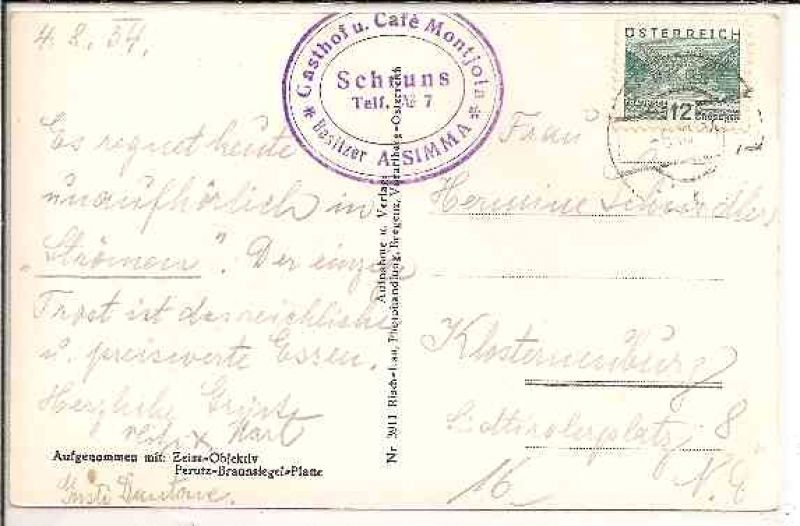 4. 8. 34.
Es regnet heute
unaufhörlich in
"Strömen". Der einzige
Trost ist das reichliche
u. preiswerte Essen.
Herzliche Grüße
Aufgenommen mit: Zeiss-Objektiv
Perutz-Braunsiegel-Platte
Gusti Dantone.
Gasthof u. Café Montjola
Schruns
Telf. № 7
* Besitzer A. SIMMA *
Nr. 3911 Risch-Lau, Photohandlung, Bregenz, Vorarlberg-Österreich
Aufnahme u. Verlag:
ÖSTERREICH
12 GROSCHEN
Frau
Hermine
Klosterneuburg
Südtirolerplatz 8